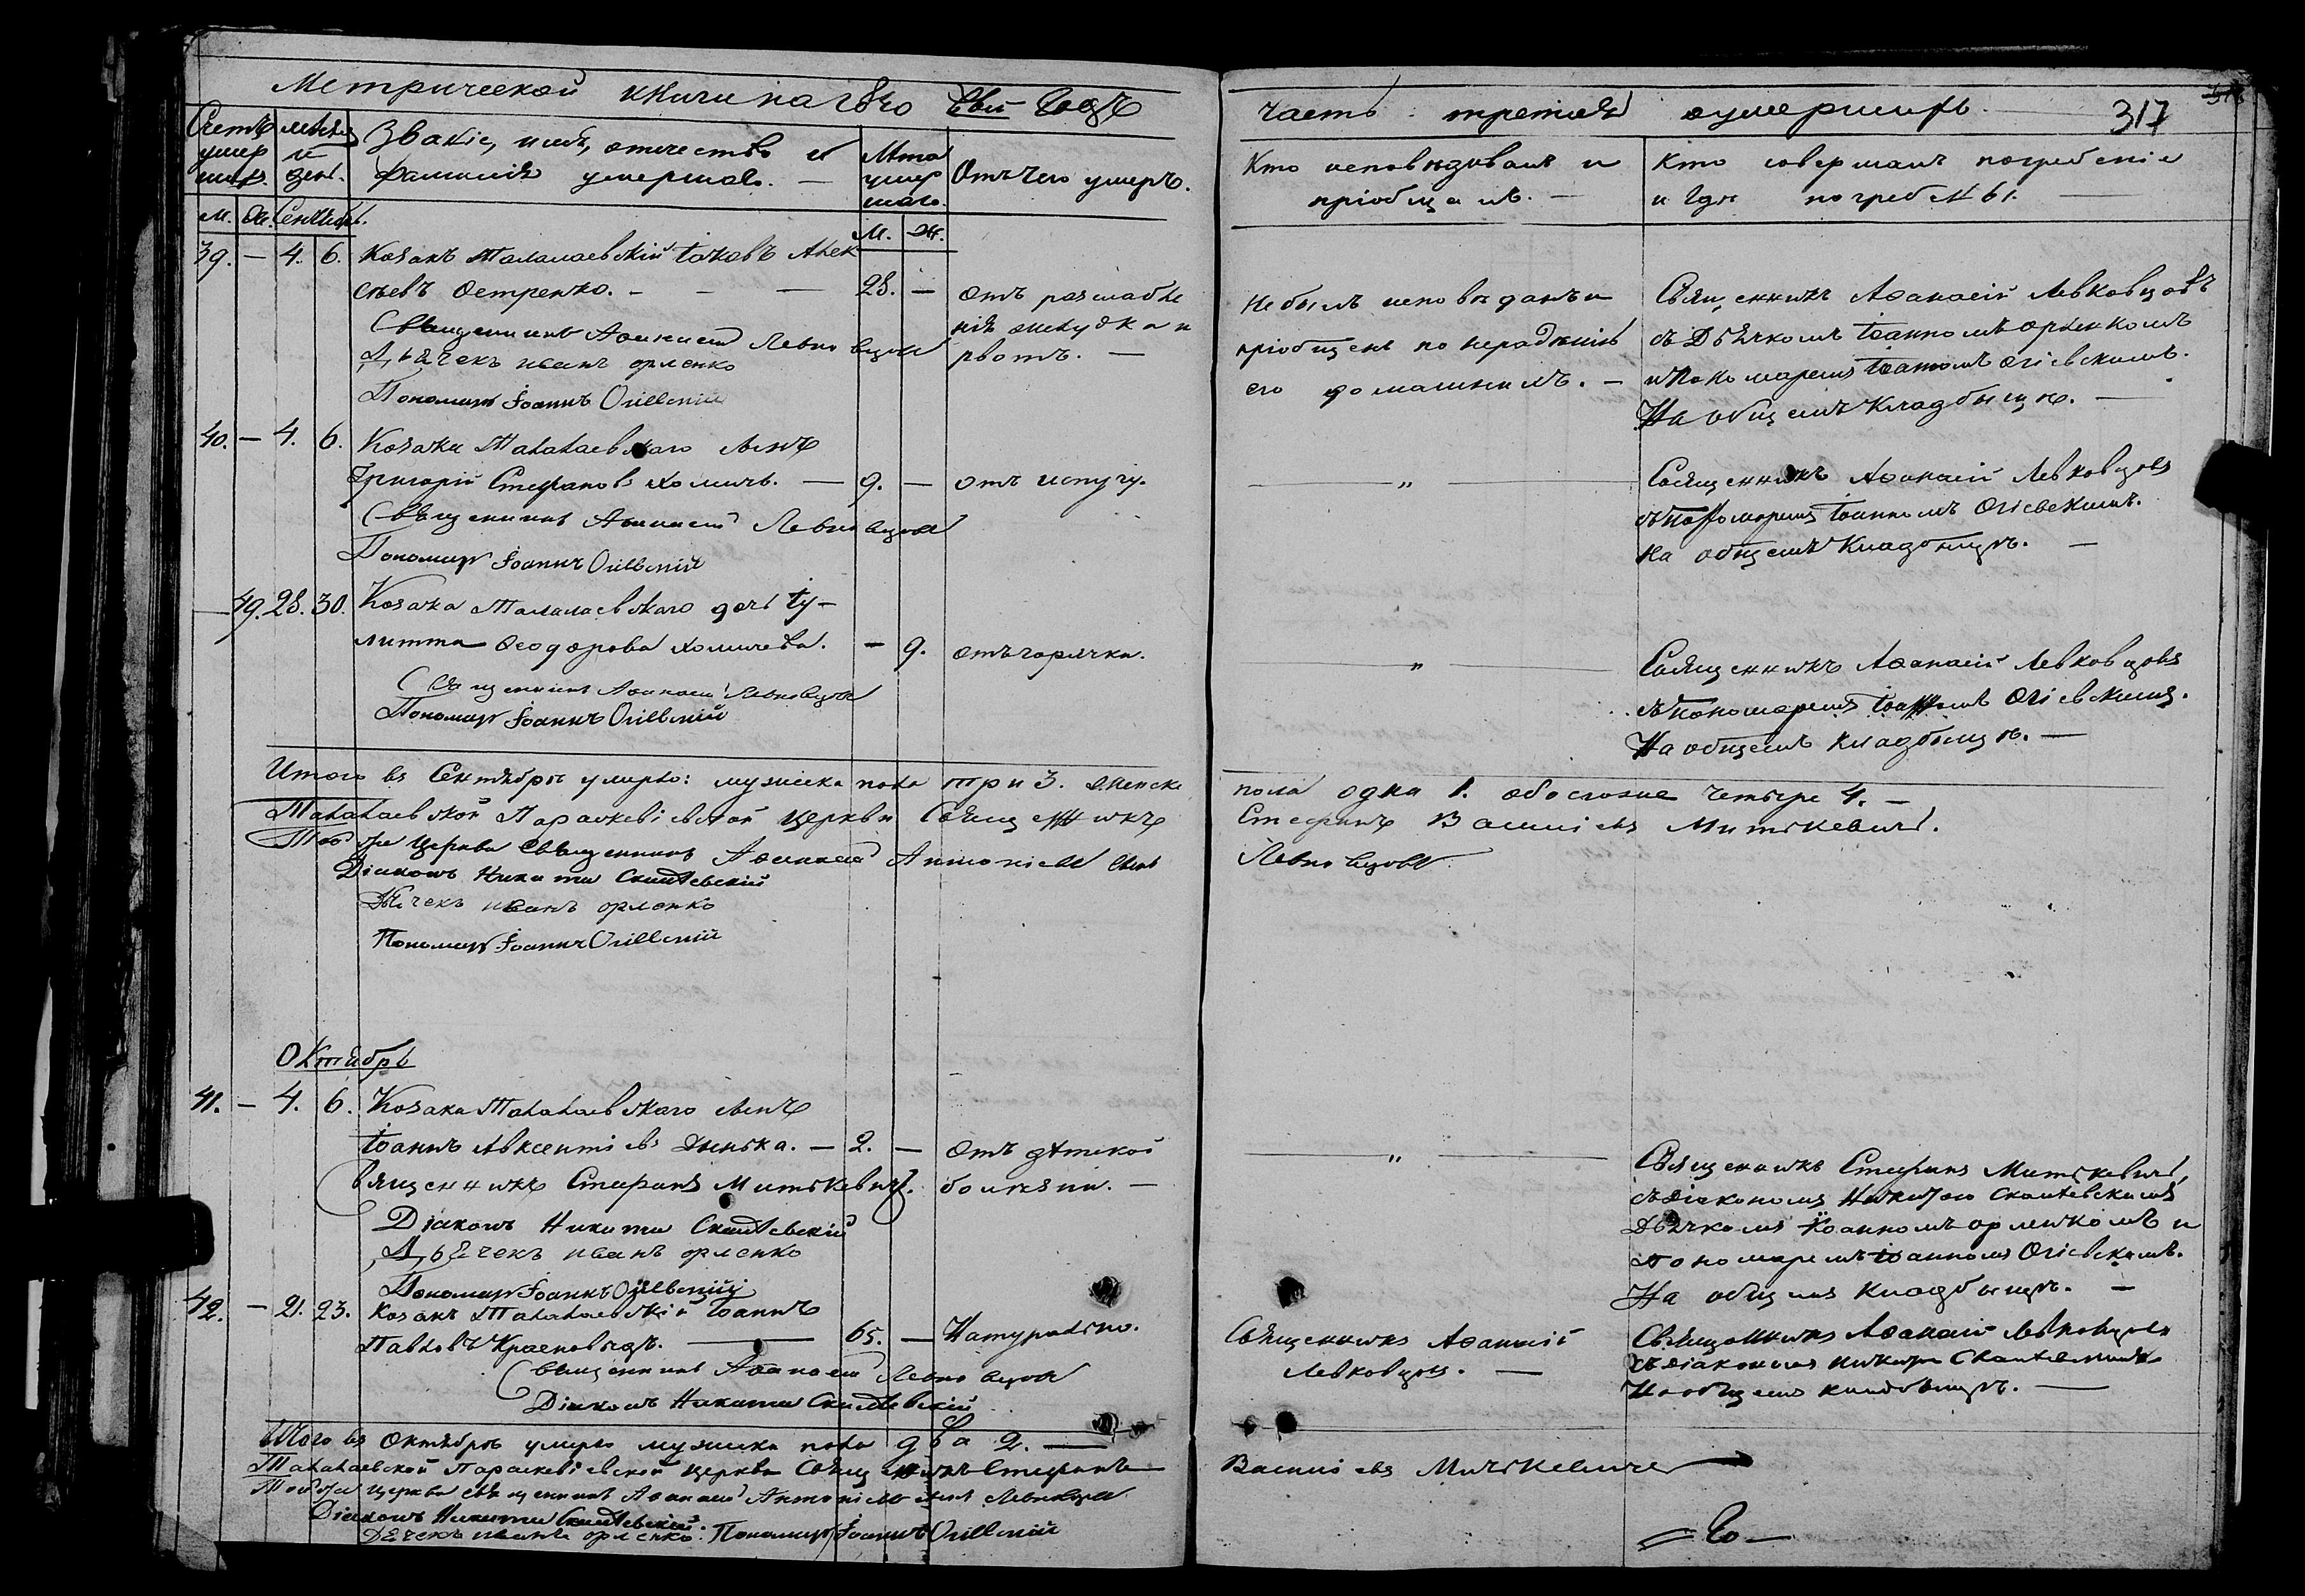 Метрической книги на 18
годъ
Счетъ умер шихъ.
мѣсяцъ и день.
Званіе, имя, отчество и фамилія умершаго. —
Лѣта умер шаго.
Отъ чего умеръ.
М. Ж. Сентябрь.
М. Ж.
39. — 4. 6. Козакъ Талалаевскій Іаковъ Алек
сѣевъ Остренко. — — — 28. — отъ разслабле
нія желудка и
Священникъ Аѳанасій Левковцовъ
рвотъ. —
Дьячекъ иванъ орленко
Пономарь Іоаннъ Огіевскій
40. — 4. 6. Козака Талалаевскаго сынъ
Григорій Стефановъ Хомичъ. — 9. — отъ испугу.
Священникъ Аѳанасій Левковцовъ
Пономарь Іоаннъ Огіевскій
— 49. 28. 30. Козака Талалаевскаго дочь Іу-
литта Ѳеодорова Хомичева. — 9. отъ горячки.
Священникъ Аѳанасій Левковцовъ
Пономарь Іоаннъ Огіевскій
Итого въ Сентябрѣ умерло: мужеска пола три 3. женска
Талалаевской Параскевіевской церкви Священникъ
Той же церкви священникъ Аѳанасій Антоніевъ сынъ
Діаконъ Никита
Дьячекъ иванъ орленко
Пономарь Іоаннъ Огіевскій
Октябрь
41. — 4. 6. Козака Талалаевскаго сынъ
Іоаннъ Авксентіевъ — 2. — отъ дѣтской
Священникъ Стефанъ Митькевичъ. болѣзни. —
Діаконъ Никита
Дьячекъ иванъ орленко
Пономарь Іоаннъ Огіевскій
42. — 21. 23. Козакъ Талалаевскій Іоаннъ
Павловъ Красновидъ. — 65. — Натурально.
Священникъ Аѳанасій Левковцовъ
Діаконъ Никита
Итого въ Октябрѣ умерло мужеска пола два 2. —
Талалаевской Параскевіевской церкви Священникъ Стефанъ
Той же церкви священникъ Аѳанасій Антоніевъ сынъ Левковцовъ
Діаконъ Никита
Дьячекъ иванъ орленко. Пономарь Іоаннъ Огіевскій
часть третья о умершихъ
317
Кто исповѣдывалъ и
пріобщалъ. —
Кто совершалъ погребеніе
и гдѣ погребены.
Не былъ исповѣданъ и
пріобщенъ по нерадѣнію
его домашнихъ. —
Священникъ Аѳанасій Левковцовъ
съ Дьячкомъ Іоанномъ орленкомъ
и Пономаремъ Іоанномъ Огіевскимъ.
На общемъ Кладбищѣ. —
— „ —
Священникъ Аѳанасій Левковцовъ
съ пономаремъ Іоанномъ Огіевскимъ.
на общемъ Кладбищѣ. —
— „ —
Священникъ Аѳанасій Левковцовъ
съ пономаремъ Іоанномъ Огіевскимъ.
На общемъ кладбищѣ. —
пола одна 1. обоего четыре 4. —
Стефанъ Васильевъ Митькевичъ.
Левковцовъ
— „ —
Священникъ Стефанъ Митькевичъ,
съ діакономъ Никитою
Дьячкомъ Іоанномъ орленкомъ и
Пономаремъ Іоанномъ Огіевскимъ.
На общемъ кладбищѣ. —
Священникъ Аѳанасій
Левковцовъ. —
Священникъ Аѳанасій Левковцовъ
съ діакономъ
На общемъ кладбищѣ. —
Васильевъ Митькевичъ